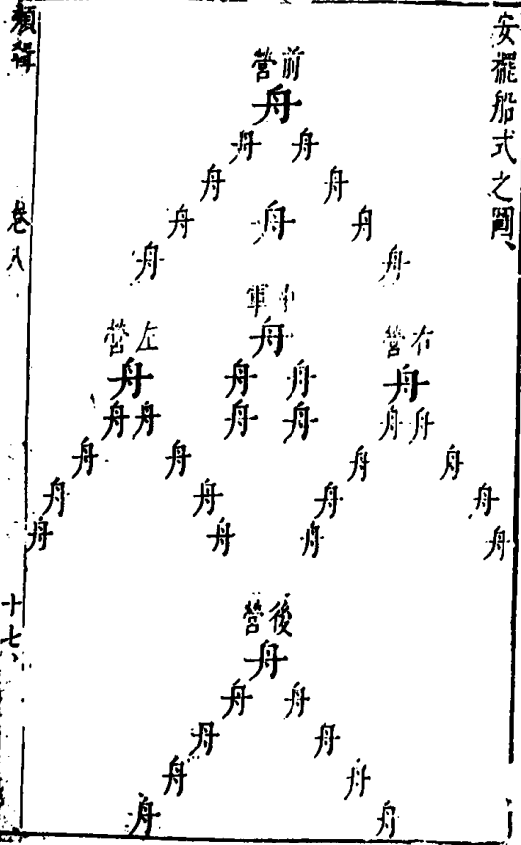 安擺船式之圖、
前營
舟
舟 舟
舟 舟
舟 舟 舟
舟 舟
中軍
舟
舟 舟
舟 舟
右營
舟
舟 舟
舟 舟
舟 舟
舟 舟
左營
舟
舟 舟
舟 舟
舟 舟
舟 舟
後營
舟
舟 舟
舟 舟
舟 舟
舟 舟
類輯 卷八 十七、